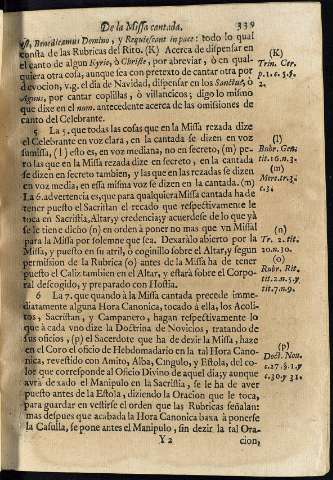 De la Missa cantada. 339
est, Benedicamus Domino, y Requiescant in pace: todo lo qual
consta de las Rubricas del Rito. (K) Acerca de dispensar en
el canto de algun Kyrie, ò Christe, por abreviar, ò en qual-
quiera otra cosa, aunque sea con pretexto de cantar otra por
devocion, v.g. el dia de Navidad, dispensar en los Sanctus, ò
Agnus, por cantar coplillas, ò villancicos; digo lo mismo
que dixe en el num. antecedente acerca de las omissiones de
canto del Celebrante.
5 La 5. que todas las cosas que en la Missa rezada dize
el Celebrante en voz clara, en la cantada se dizen en voz
sumissa, (l) esto es, en voz mediana, no en secreto, (m) pe-
ro las que en la Missa rezada dize en secreto, en la cantada
se dizen en secreto tambien, y las que en las rezadas se dizen
en voz media, en essa misma voz se dizen en la cantada. (m)
La 6. advertencia es, que para qualquiera Missa cantada ha de
tener puesto el Sacristan el recado que respectivamente le
toca en Sacristìa, Altar, y credencia; y acuerdese de lo que yà
se le tiene dicho (n) en orden à poner no mas que vn Missal
para la Missa por solemne que sea. Dexaràlo abierto por la
Missa, y puesto en su atril, ò cogìnillo sobre el Altar, y segun
permission de la Rubrica (o) antes de la Missa ha de tener
puesto el Caliz tambien en el Altar, y estarà sobre el Corpo-
ral descogido, y preparado con Hostia.
6 La 7. que quando à la Missa cantada precede imme-
diatamente alguna Hora Canonica, tocado à ella, los Acoli-
tos, Sacristan, y Campanero, hagan respectivamente lo
que à cada vno dize la Doctrina de Novicios, tratando de
sus oficios, (p) el Sacerdote que ha de dezir la Missa, haze
en el Coro el oficio de Hebdomadario en la tal Hora Cano-
nica, revestido con Amito, Alba, Cingulo, y Estola, del co-
lor que corresponde al Oficio Divino de aquel dia; y aunque
avrà dexado el Manipulo en la Sacristia, se le ha de aver
puesto antes de la Estola, diziendo la Oracion que le toca,
para guardar en vestirse el orden que las Rubricas señalan:
mas despues que acabada la Hora Canonica baxa à ponerse
la Casulla, se pone antes el Manipulo, sin dezir la tal Ora-
Y 2 cion,
(K)
Trin. Cer.
p.1.c.5.§.
2.
(l)
Rubr. Gen.
tit.16.n.3.
(m)
(n)
Tr. 2. tit.
20.n.30.
(o)
Rubr. Rit.
tit.2.n.5.y
tit.7.n.9.
(p)
Doct. Nov.
c.27.§.1.y
c.30.y 31.